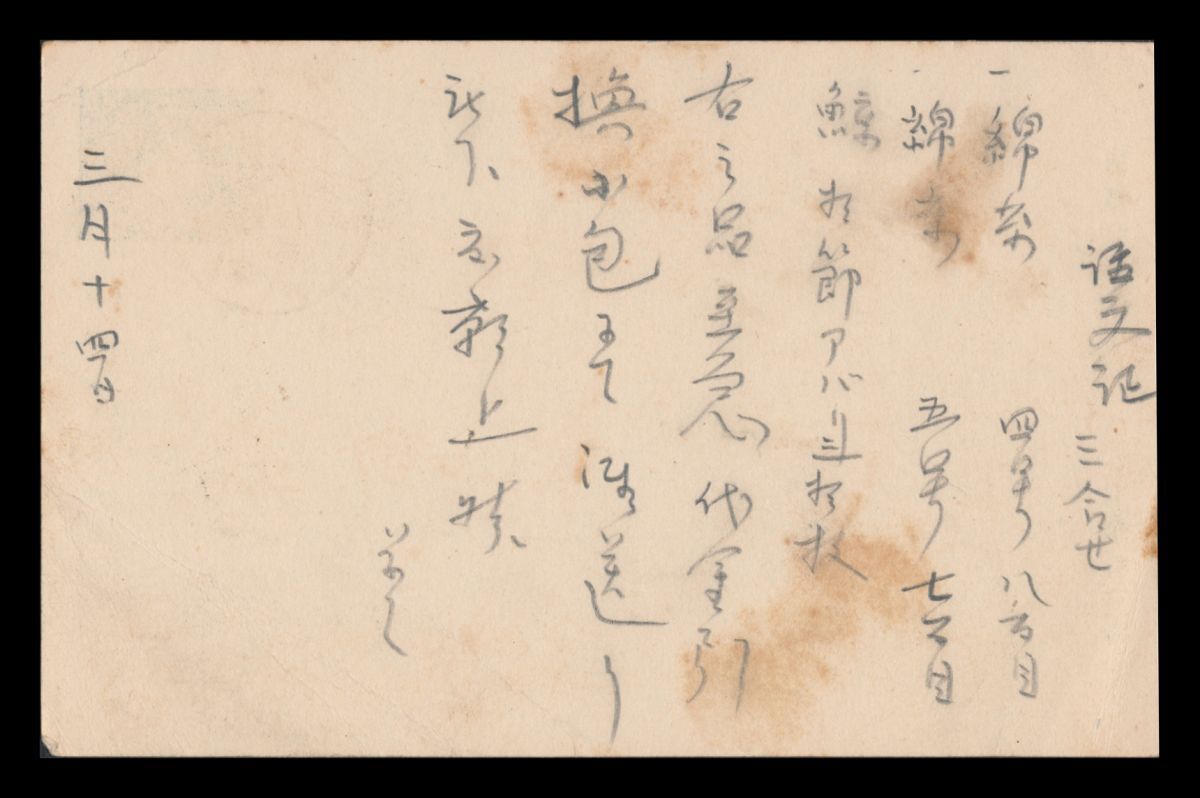 註文記 三合せ
一 綿糸 四号 八百目
一 綿糸 五号 七百目
鯨 節アバリ 枚
右之品至急代金引
換小包ニテ御送リ
被下度願上候
草々
三月十四日